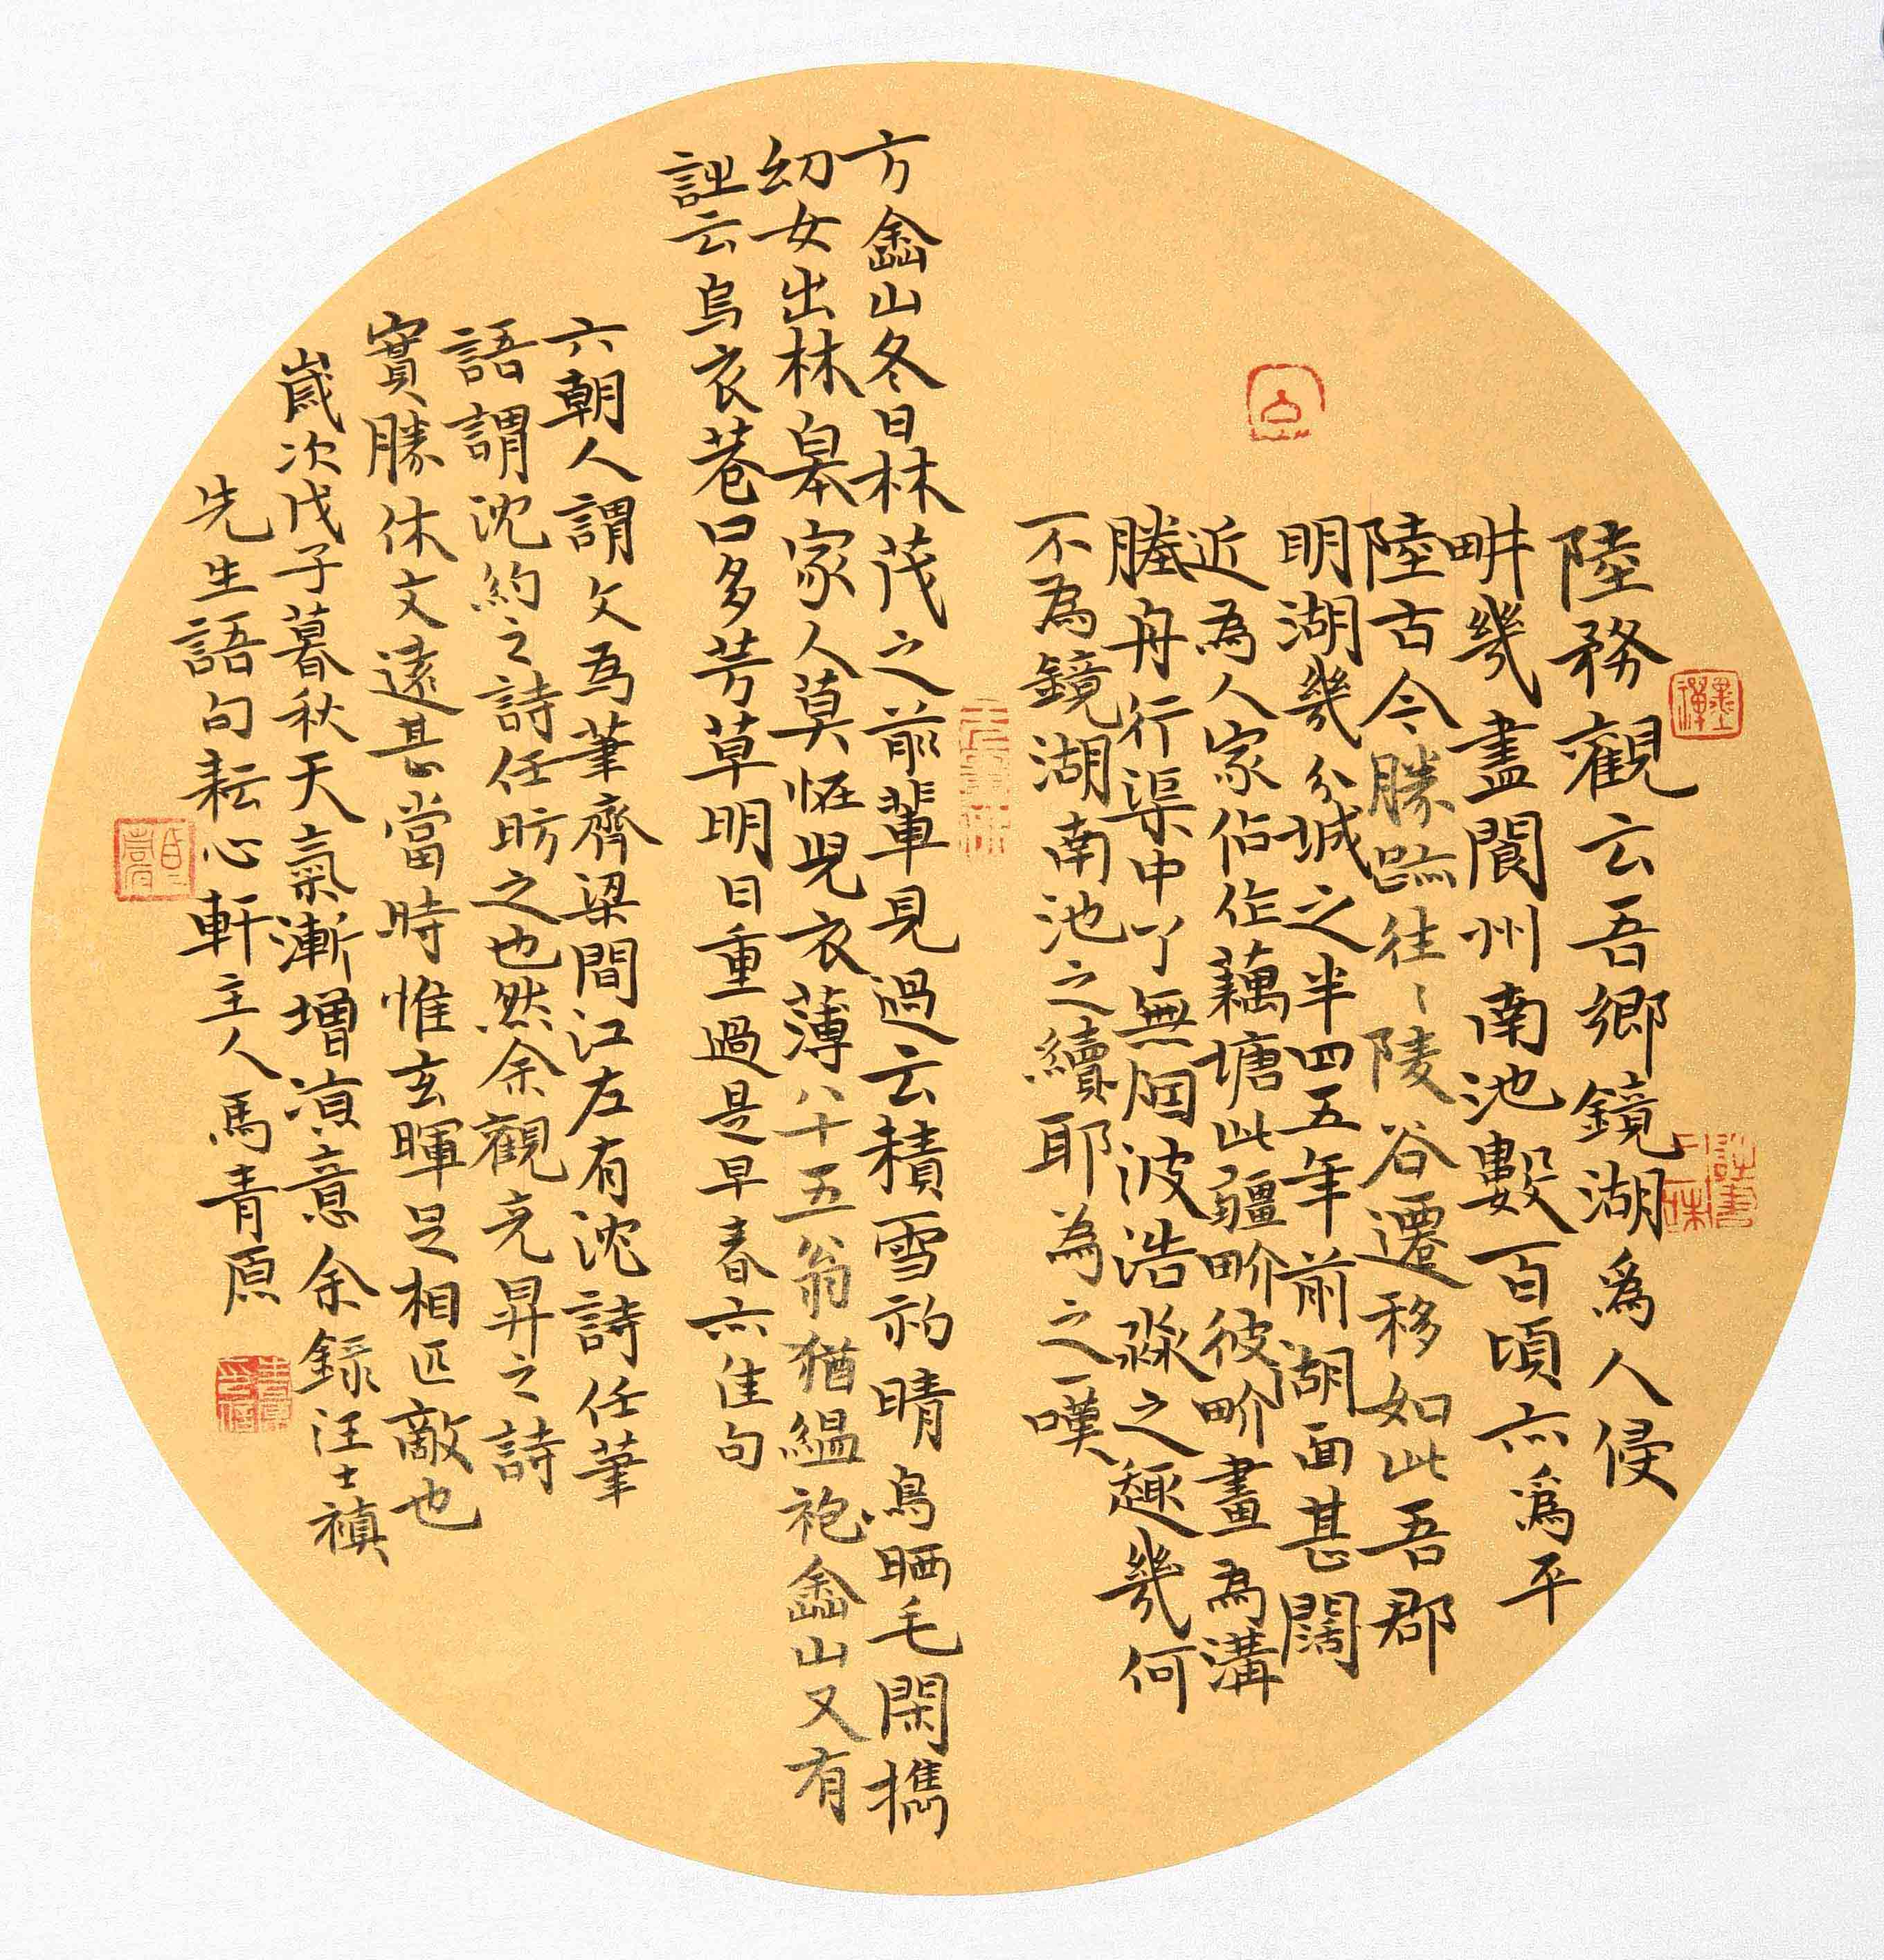 陸務觀云吾鄉鏡湖爲人侵
畊幾盡閬州南池數百頃亦爲平
陸古今勝蹟往〻陵谷遷移如此吾郡
明湖幾分城之半四五年前湖面甚闊
近為人家佔作藕塘此疆畍彼畍畫為溝
塍舟行渠中了無烟波浩淼之趣幾何
不為鏡湖南池之續耶為之一嘆
方嵞山冬日林茂之前輩見過云積雪初晴鳥晒毛閑攜
幼女出林皋家人莫怪兒衣薄八十五翁猶緼袍嵞山又有
誑云烏衣巷口多芳草明日重過是早春亦佳句
六朝人謂文為筆齊梁間江左有沈詩任筆
語謂沈約之詩任昉之也然余觀彥昇之詩
實勝休文遠甚當時惟玄暉足相匹敵也
歲次戊子暮秋天氣漸增凉意余錄汪士禛
先生語句耘心軒主人馬青原